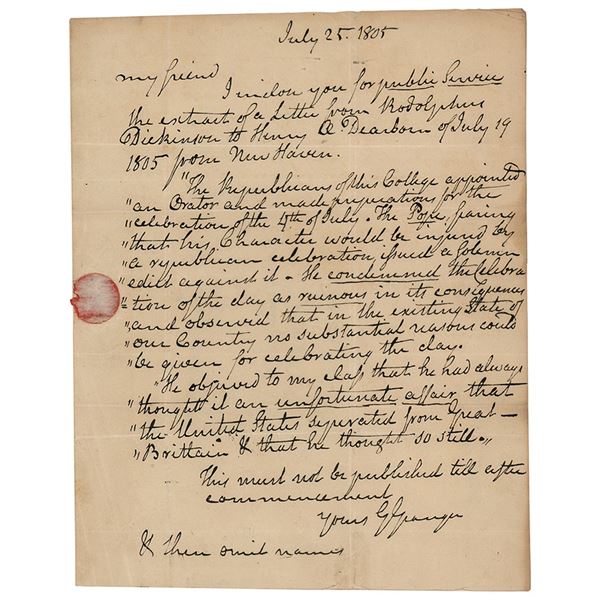 July 25. 1805
my friend
I inclose you for public Service
the extract of a Letter from Rodolphus
Dickinson to Henry A Dearborn of July 19
1805 from New Haven.
"The Republicans of this College appointed
"an Orator and made preparations for the
"celebration of the 4th of July. The Pope, fearing
"that his Character would be injured by
"a republican celebration issued a Solemn
"edict against it. He condemned the celebra
"tion of the day as ruinous in its consequences
"and observed that in the existing State of
"our Country no substantial reasons could
"be given for celebrating the day.
"He observed to my class that he had always
"thought it an unfortunate affair that
"the United States seperated from Great
"Brittain & that he thought so still."
This must not be published till after
commencement
Yours G Granger
& then omit names